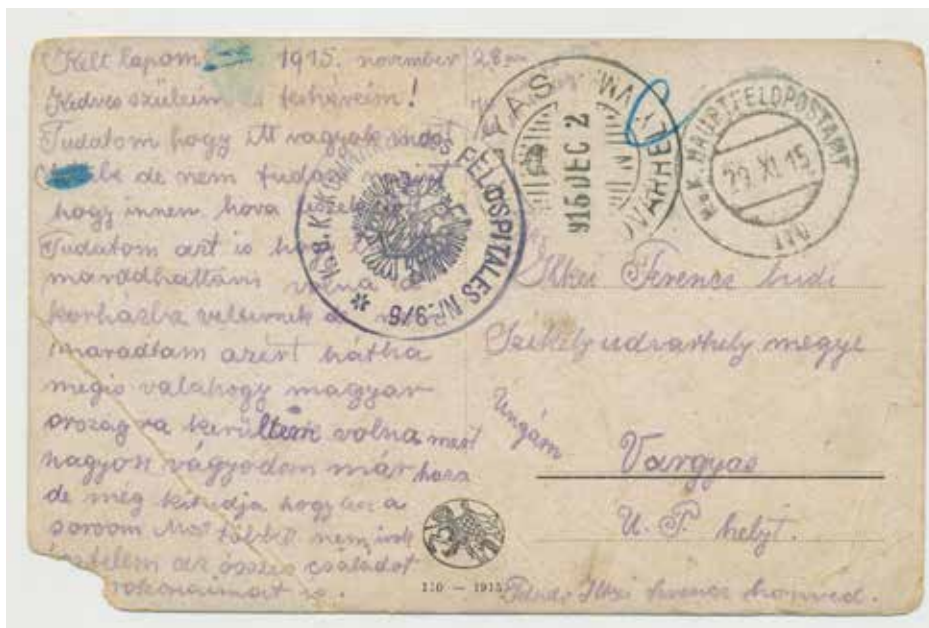 Kelt lapom 1915. november 28án
Kedves szüleim és testvéreim!
Tudatom hogy itt vagyok most
be de nem tudom
hogy innen hova
Tudatom azt is
maradhattam volna
korházba
maradtam azért hátha
mégis valahogy magyar
országra kerültem volna mert
nagyon vágyodom már haza
de még kitudja hogy lesz a
sorsom Most többet nem irok
tisztelem az összes családot
rokonaimat is.
K.u.K. HAUPTFELDPOSTAMT
29. XI. 15
915 DEC 2
FELDSPITALES Nr. 9/6
Ilkei Ferencz
Székely udvarhely megye
Ungárn
Vargyas
U. P. helyt.
110 — 1915
Feladó Ilkei Ferencz honvéd.